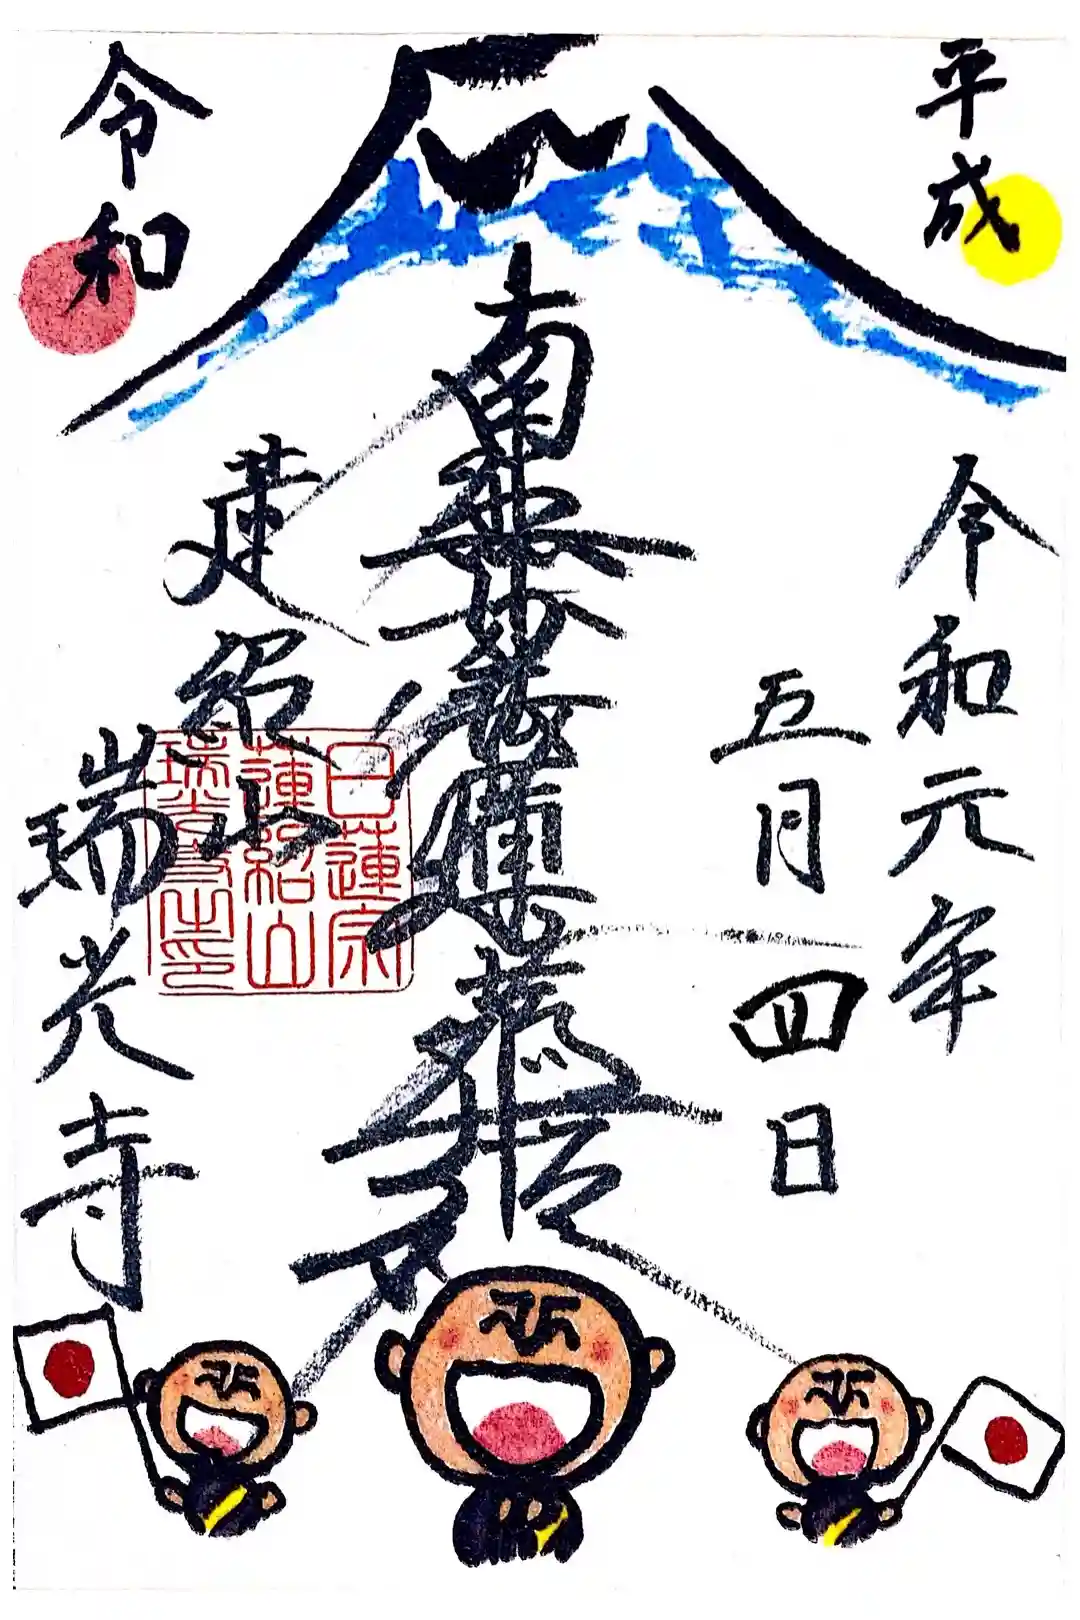 平成
令和
令和元年
五月四日
南無妙法蓮華経
蓮紹山
瑞光寺
日蓮宗
蓮紹山
瑞光寺之印